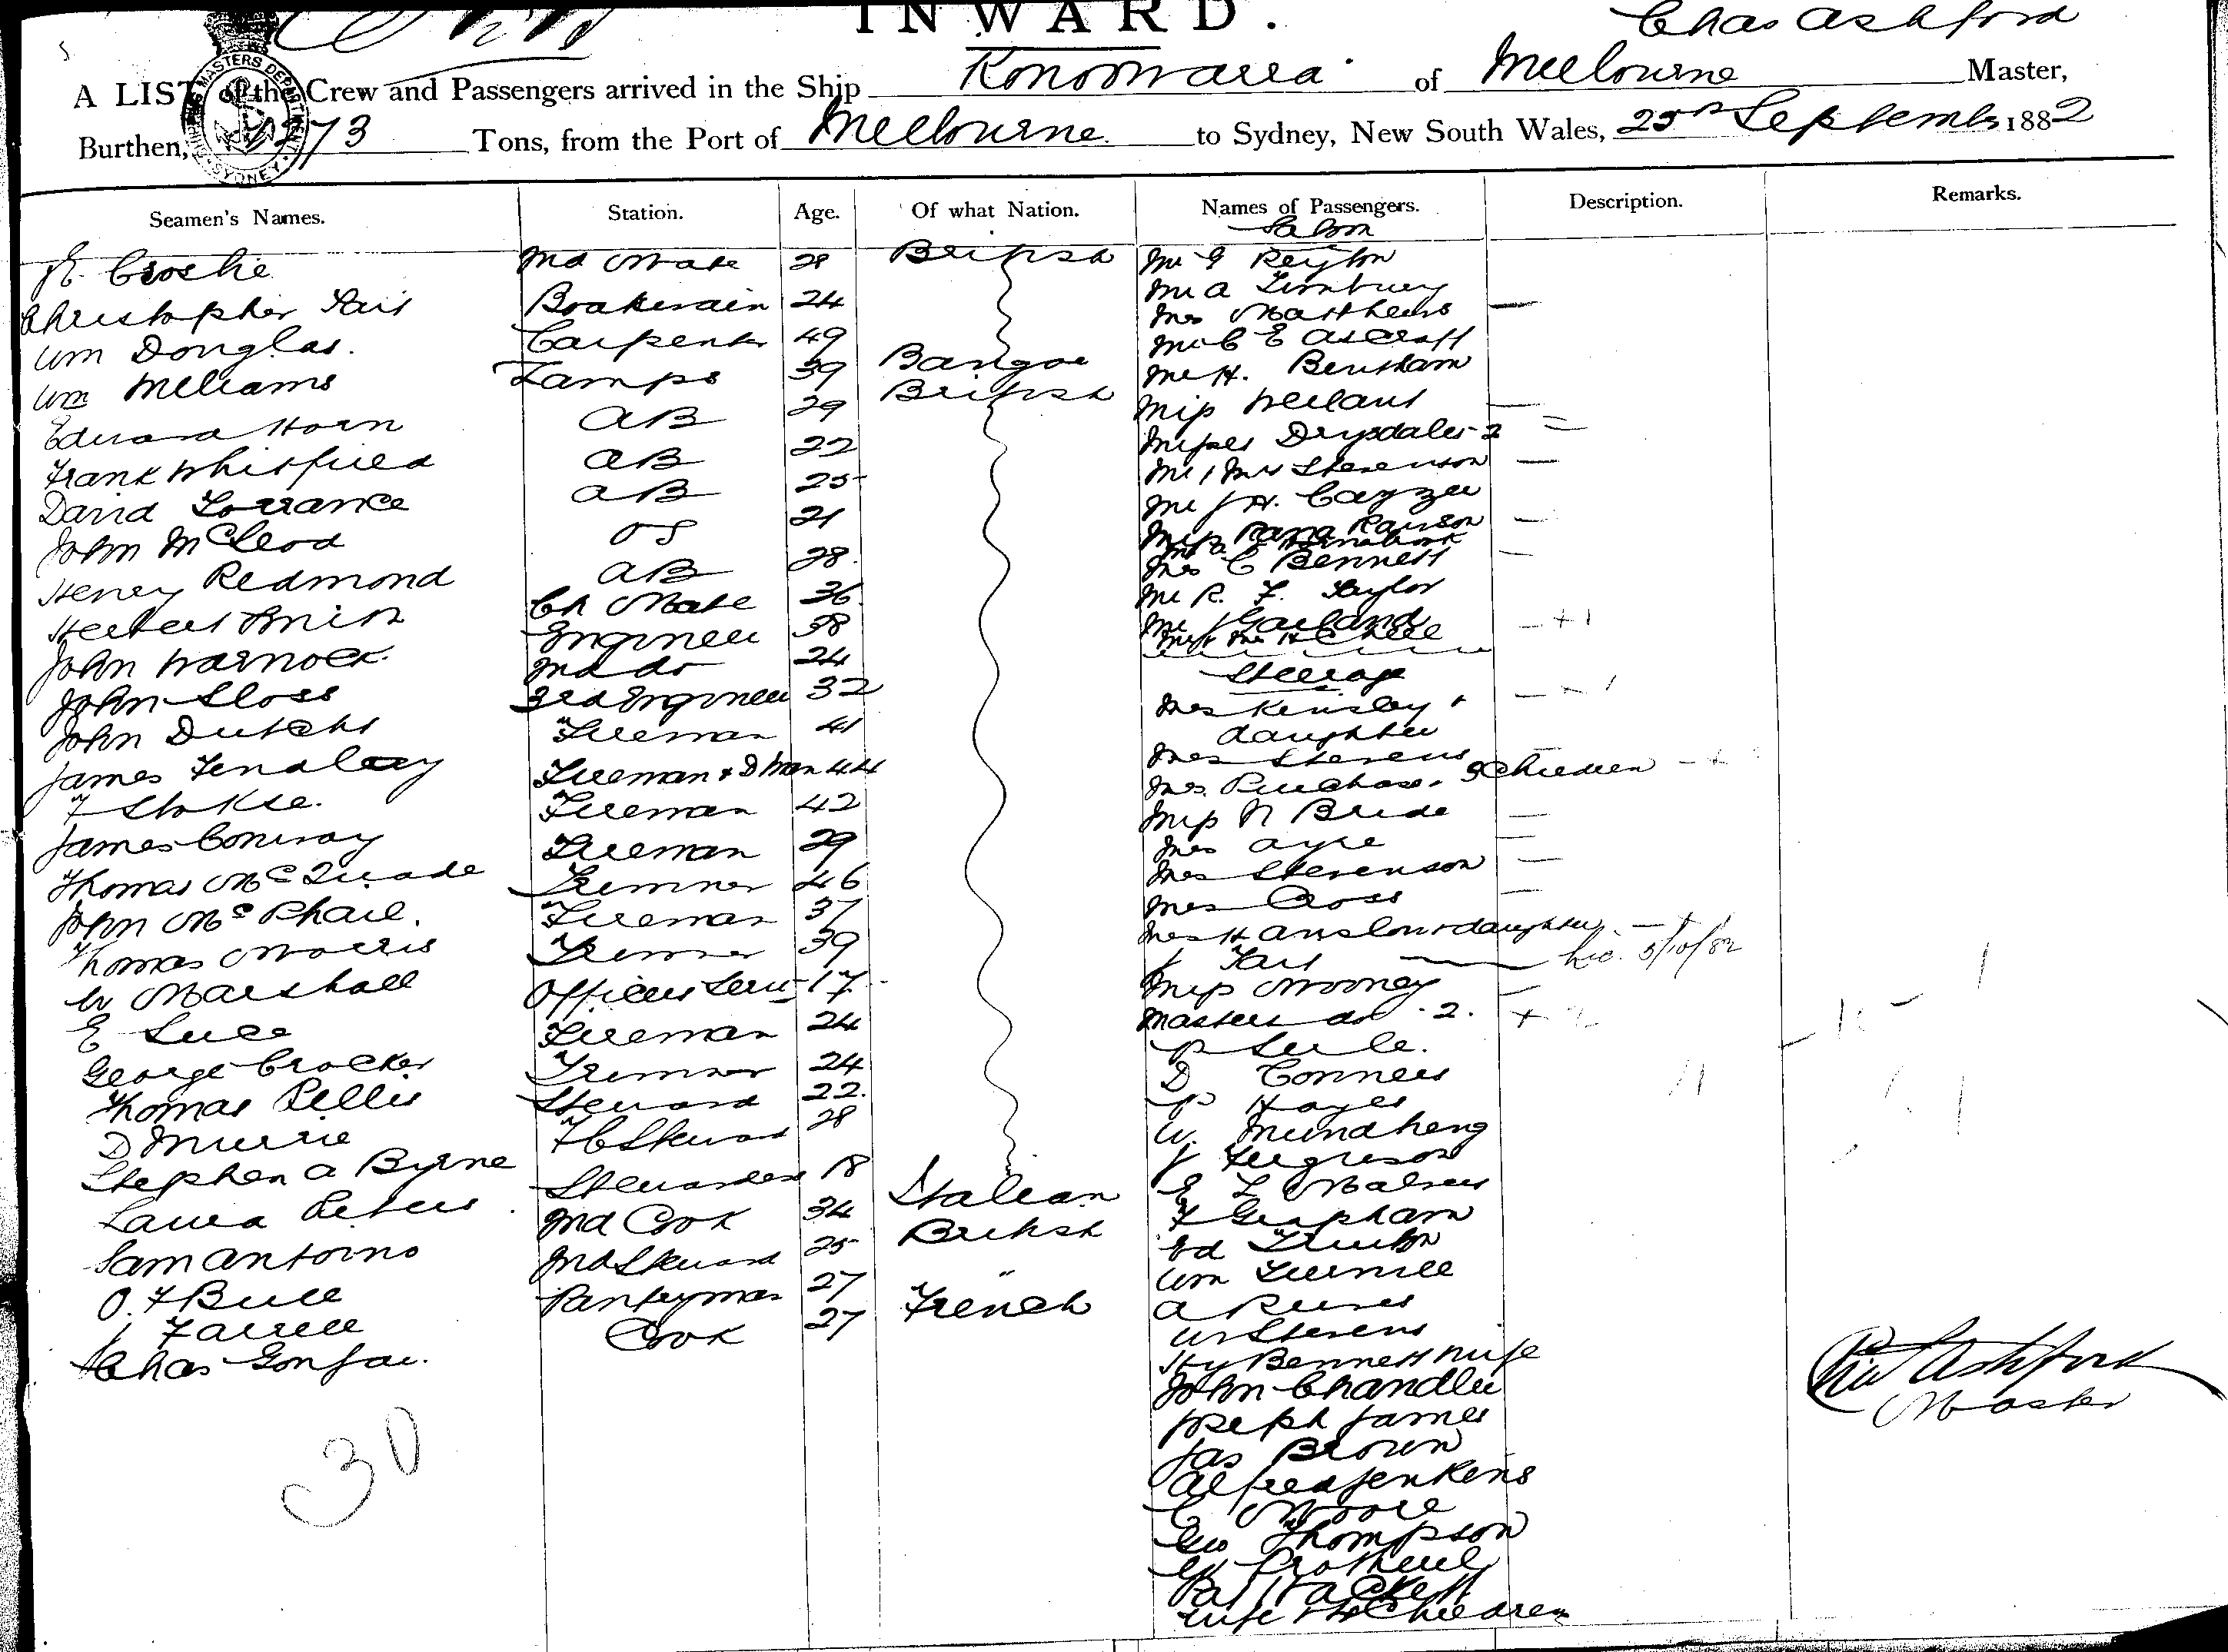 INWARD.
Chas Ashford
A LIST of the Crew and Passengers arrived in the Ship Konoowarra of Melbourne Master,
Burthen, 1273 Tons, from the Port of Melbourne to Sydney, New South Wales, 25th September 1882
Seamen's Names. Station. Age. Of what Nation. Names of Passengers. Description. Remarks.
Saloon
2nd Mate 28 British Mr
Christopher Boatswain 24 Mr A
Wm Douglas. Carpenter 49 Mrs Matthews
Wm Williams Lamps 39 Bangor Mr C E Ascroft
Edward Horn AB 29 British Mr H. Bentham
Frank Whitfield AB 22 Miss
David Lorrance AB 25 Misses Drysdales 2
John McLeod OS 21 Mr & Mrs Stevenson
Henry Redmond AB 28. Mr J H. Cayzer
Herbert Ch Mate 36 Miss Rawson
John Warnock Engineer 38 Mrs C Bennett
John Sloss 2nd do 24 Mr R. F. Taylor
John 3rd Engineer 32 Mr J Garland
James Fireman 41 Steerage
F Stokes. Fireman & D Man 44 Mrs Kensley &
James Conway Fireman 42 daughter
Thomas McQuade Fireman 29 Mrs Stevens
John McPhail. Trimmer 46 Mrs Purchase & Children
Thomas Morris Fireman 37 Miss N Bride
W Marshall Trimmer 39 Mrs Ayre
E Luce Officers Servt 17 Mrs Stevenson
George Crocker Fireman 24 Mrs Cross
Thomas Trimmer 24 Mrs Hanslow & daughter
D Murrie Steward 22. J 5/10/82
Stephen A Byrne F C Steward 28 Miss Mooney
Laura Peters Stewardess 18 Masters do 2.
Sam Antonio 2nd Cook 34 Italian
O. F Bull 2nd Steward 25 British D Conners
J Farrell Pantryman 27 " P Hayes
Chas Cook 27 French W. Mundheng
J Ferguson
E L
F Grapham
Ed
Wm
A Reeves
W Stevens
Hy Bennett wife
John Chandler
Joseph James
Jas Brown
Alfred Jenkens
C Moore
Geo Thompson
Pat Hackett
wife & Children
Chas Ashford
Master
30